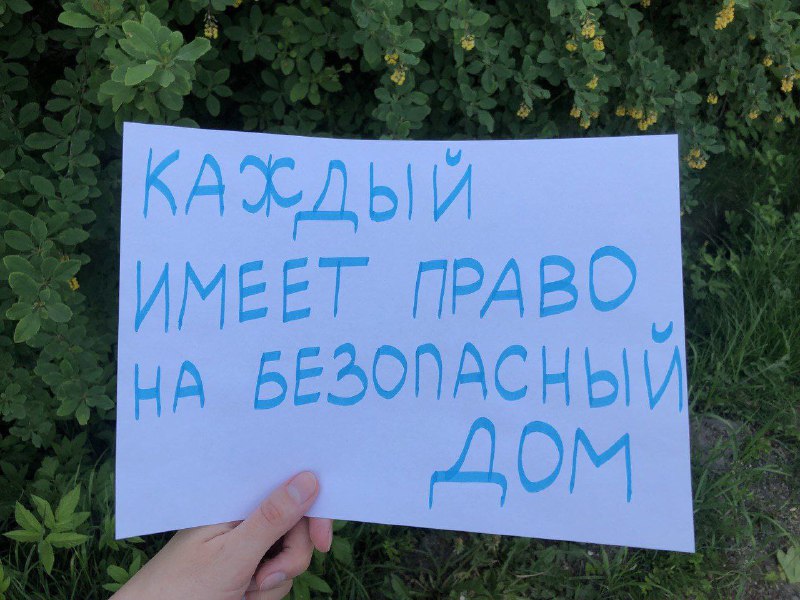 КАЖДЫЙ
ИМЕЕТ ПРАВО
НА БЕЗОПАСНЫЙ
ДОМ